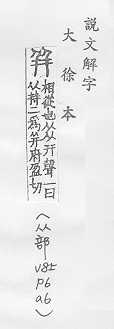 說文解字
大徐本
幷 相從也从从幵聲一曰
从持二爲幷府盈切
〈从部
v8上
p6
a6〉